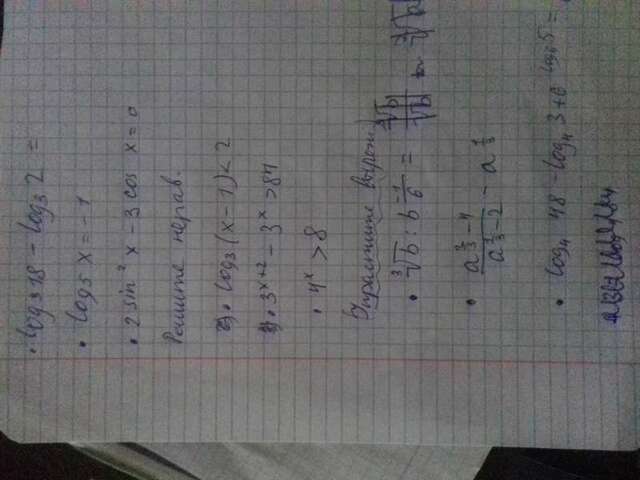 • log₃18 - log₃2 =
• log₅ x = -1
• 2 sin² x - 3 cos x = 0
Решите нерав.
• log₃(x-1) < 2
• 3ˣ⁺² - 3ˣ > 84
• 4ˣ > 8
Упрастите выраж
• ³√b : b^(-1/6) =
• (a^(2/3) - 4)/(a^(1/3) - 2) - a^(1/3)
• log₄ 48 - log₄ 3 + 6^(log₆5) =